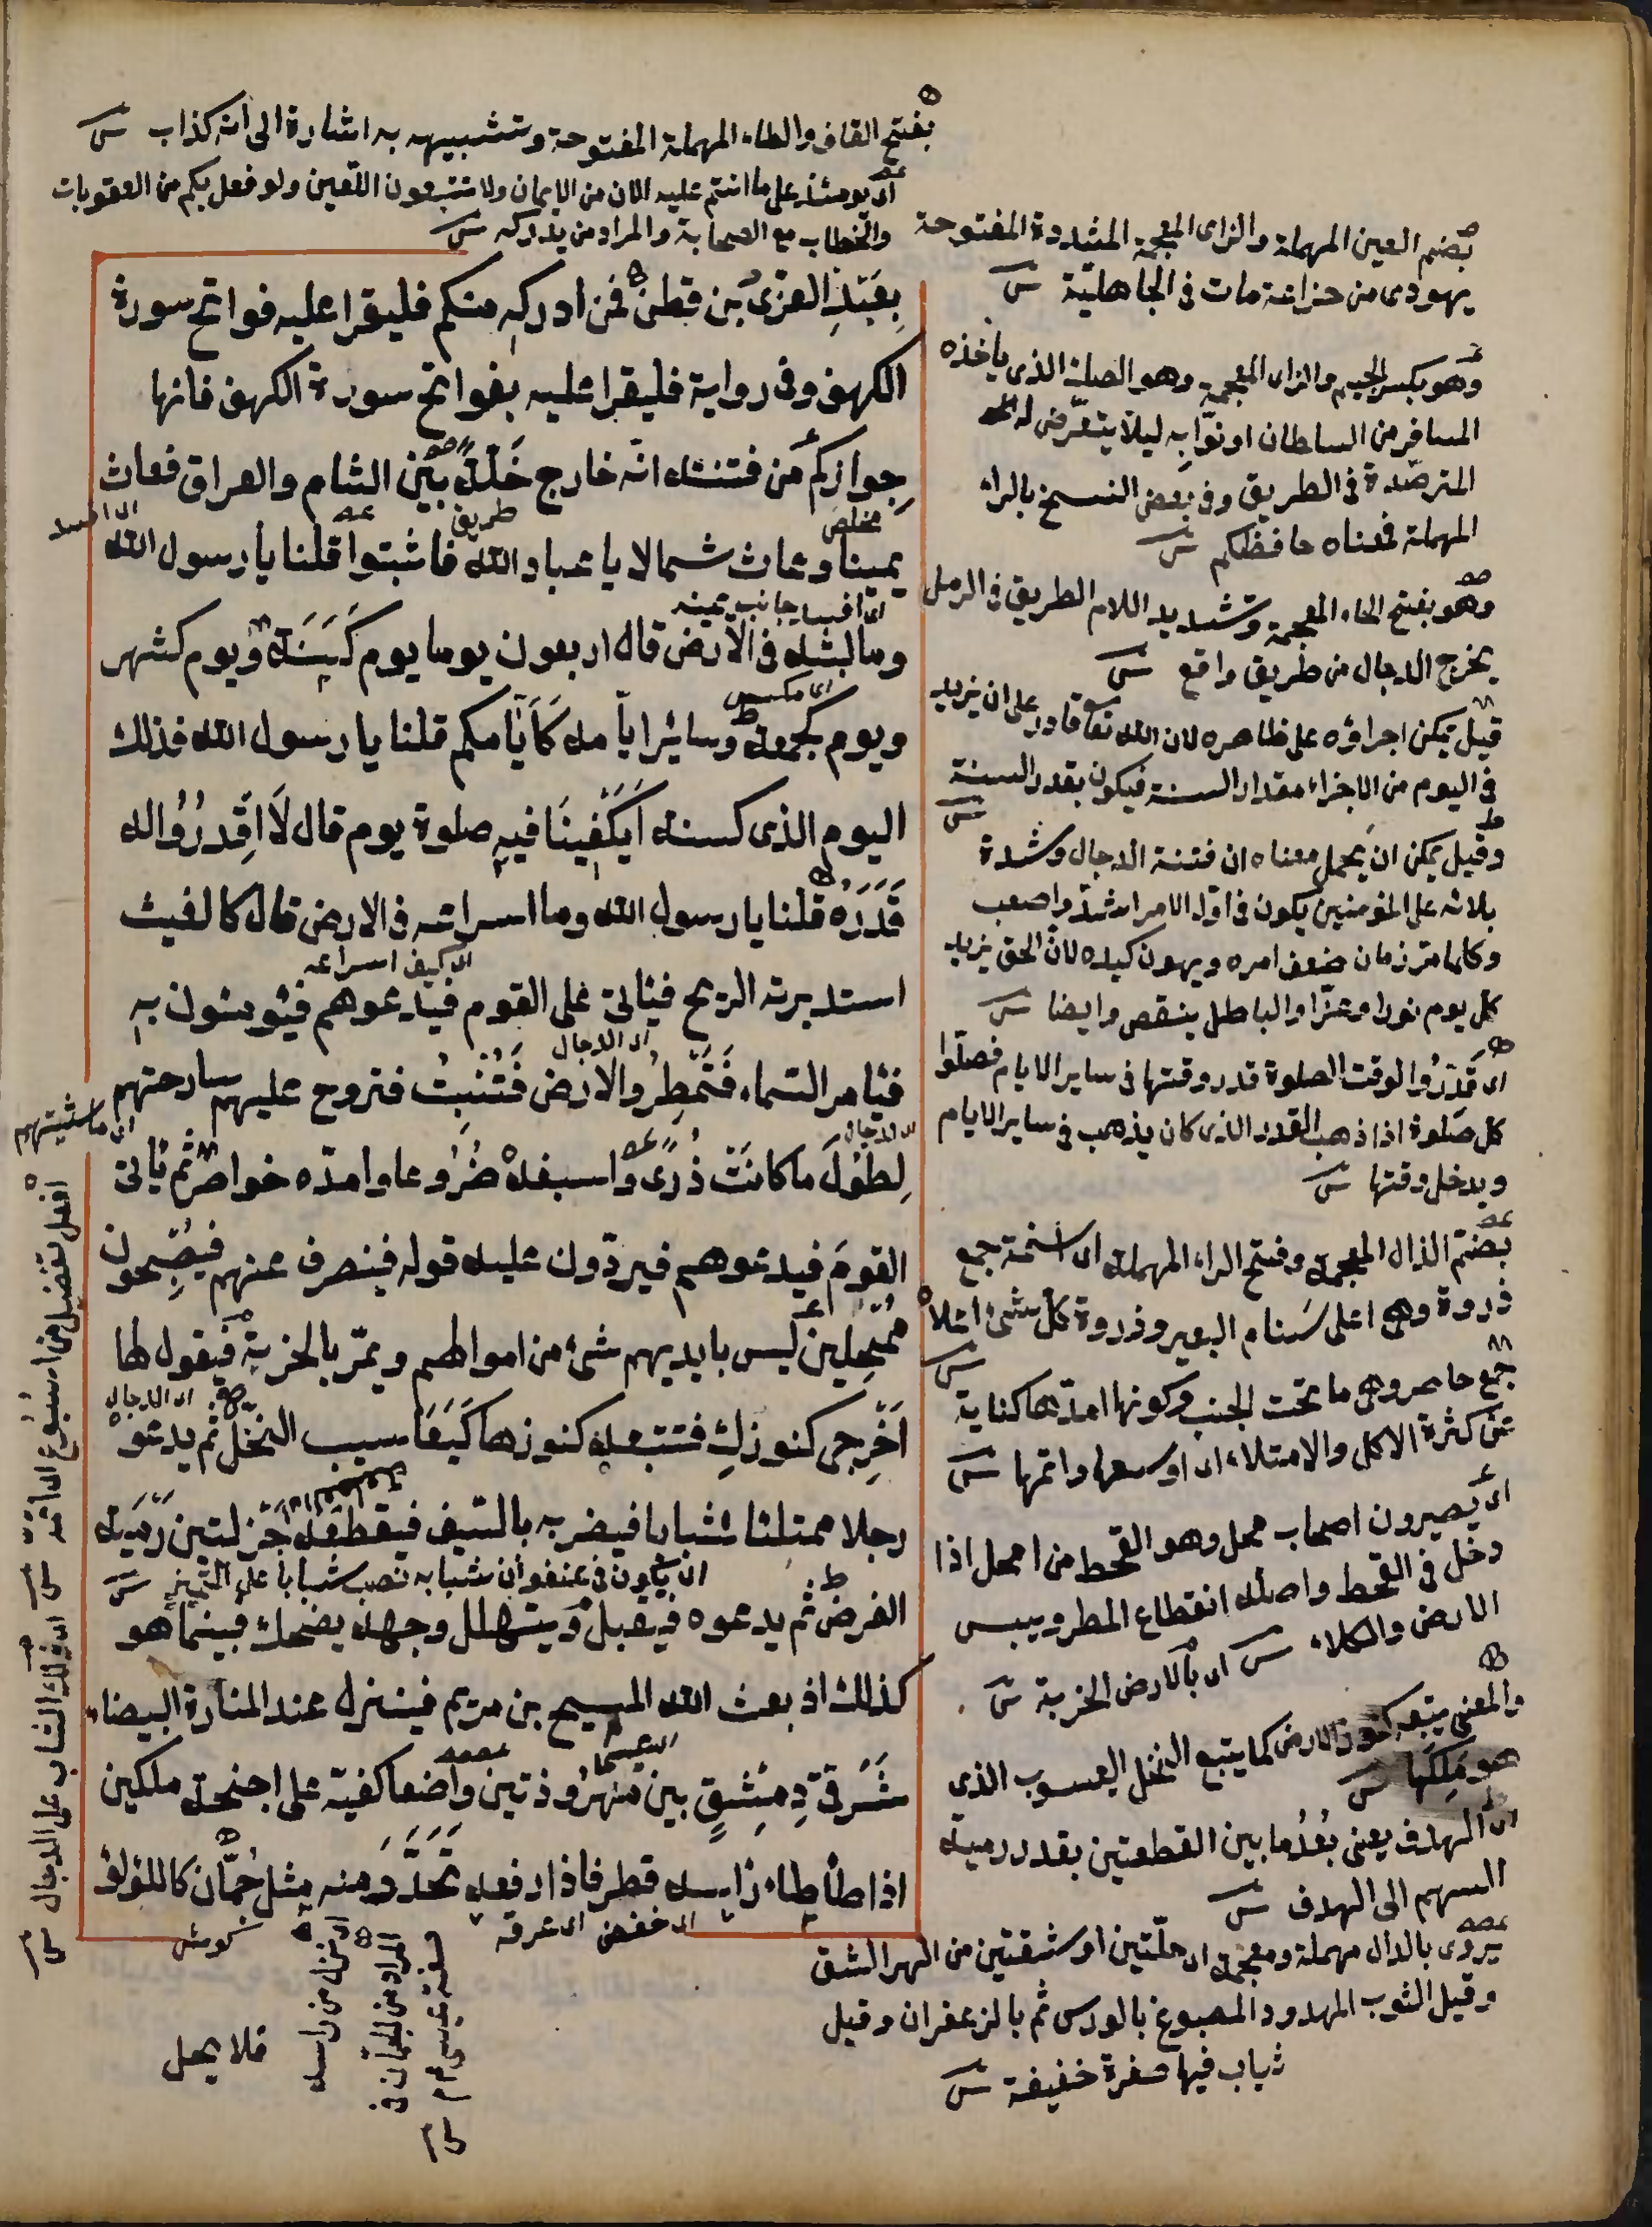 بفتح القاف والطاء المهملة المفتوحة وتشبيهه به اشارة الى انه كذاب ش
اى يومئذ على ما انتم عليه الان من الايمان ولا تتبعون اللعين ولو فعل بكم من العقوبات
والخطاب مع الصحابة والمراد من يدركه ش
بِعَبْدِ العزى بن قطن فمن ادركه منكم فليقرا عليه فواتح سورة
الكهف وفى رواية فليقرا عليه بفواتح سورة الكهف فانها
جِوازكم من فتنته انه خارج خَلّة بين الشام والعراق فعاث
مخلص
طريق
اى افسد
يمينا وعاث شمالا يا عباد الله فاثبتوا قلنا يا رسول الله
اى افسد جانب يمينه
وما لبثه فى الارض قال اربعون يوما يوم كَسَنَة ويوم كشهر
اى مكسه
ويوم كجمعة وسائر ايامه كَاَيّامكم قلنا يا رسول الله فذلك
اليوم الذى كسنة اَيَكْفِينَا فيه صلوة يوم قال لَا اُقْدُرُوا له
قَدَرَهُ قلنا يا رسول الله وما اسراعه فى الارض قال كالغيث
اى كيف اسراعه
استدبرته الريح فيأتى على القوم فيدعوهم فيؤمنون به
اى الدجال
فيأمر السماء فَتُمْطِرُ والارض فَتُنْبِتُ فتروح عليهم سارحتهم
اى ماشيتهم
اى الدجال
لِطُولَ ما كانَتْ ذُرًى واسبغه ضُرُوعا وامده خواصر ثم يأتى
القومَ فيدعوهم فيردّون عليه قوله فينصرف عنهم فيُصْبِحون
مُمْحِلِينَ ليس بايديهم شئ من اموالهم ويمرّ بالخربة فيقول لها
اى الدجال
اَخْرِجى كنوزكِ فتتبعه كنوزها كَيَعَاسيب النحل ثم يدعو
رجلا ممتلئا شبابا فيضربه بالسيف فيقطعه جَزلتين رَمْيَة
اى يكون فى عنفوان شبابه نصب شبابا على التمييز ش
الغرض ثم يدعوه فيقبل ويتهلل وجهه يضحك فبينما هو
كذلك اذ بعث الله المسيح بن مريم فينزل عند المنارة البيضاء
شَرْقىّ دِمَشْقٍ بين مهرُوذتين واضعا كفيه على اجنحة ملكين
اذا طأطاء رأسه قطر فاذا رفعه تَحَدَّرَ منه مثل جُمَّان كاللؤلؤ
اى خفض
اى عرقه
فلا يحل
بضم العين المهملة والزاى المعجمة المشددة المفتوحة
يهودى من خزاعة مات فى الجاهلية ش
وهو بكسر الجيم والزاى المعجمة وهو الصلة الذى يأخذه
المسافر من السلطان او نوابه ليلا يتعرض له
المترصدة فى الطريق وفى بعض النسخ بالراء
المهملة فمعناه حافظكم ش
وهو بفتح الخاء المعجمة وتشديد اللام الطريق فى الرمل
يخرج الدجال من طريق واقع ش
قيل يمكن اجراؤه على ظاهره لان الله تعا قادر على ان يزيد
فى اليوم من الاجزاء مقدار السنة فيكون بقدر السنة ش
وقيل يمكن ان يحمل معناه ان فتنة الدجال وشدة
بلائه على المؤمنين يكون فى اول الامر اشد واصعب
وكلما مر زمان ضعف امره ويهون كيده لان الحق يزيد
كل يوم نورا وعزا والباطل ينقص وايضا ش
اى قَدِّرُوا لوقت الصلوة قدر وقتها فى ساير الايام فصلّوا
كل صلوة اذا ذهب القدر الذى كان يذهب فى ساير الايام
ويدخل وقتها ش
بضم الذال المعجمة وفتح الراء المهملة اى اسنمة جمع
ذروة وهى اعلى سَنام البعير وذروة كل شئ اعلاه ش
جمع خاصر وهى ما تحت الجنب وكونها امدها كناية
عن كثرة الاكل والامتلاء اى اوسعها واتمها ش
اى يصيرون اصحاب محل وهو القحط من امحل اذا
دخل فى القحط واصله انقطاع المطر ويبس
الارض والكلاء ش اى بالارض الخربة ش
والمعنى يتبعه كنوز الارض كما يتبع النحل اليعسوب الذى
هو مَلِكَها ش
اى الهدف يعنى بُعْدُ ما بين القطعتين بقدر رمية
السهم الى الهدف ش
يروى بالدال مهملة ومعجمة اى حلّتين او شقتين من الهر الشق
وقيل الثوب المهدود المصبوغ بالورس ثم بالزعفران وقيل
ثياب فيها صفرة خفيفة ش
افعل تفضيل من اسبوع اى اتمه ش اى ذلك الشاب على الدجال ش
اى نزل من راسه
المراد من الجمان فى